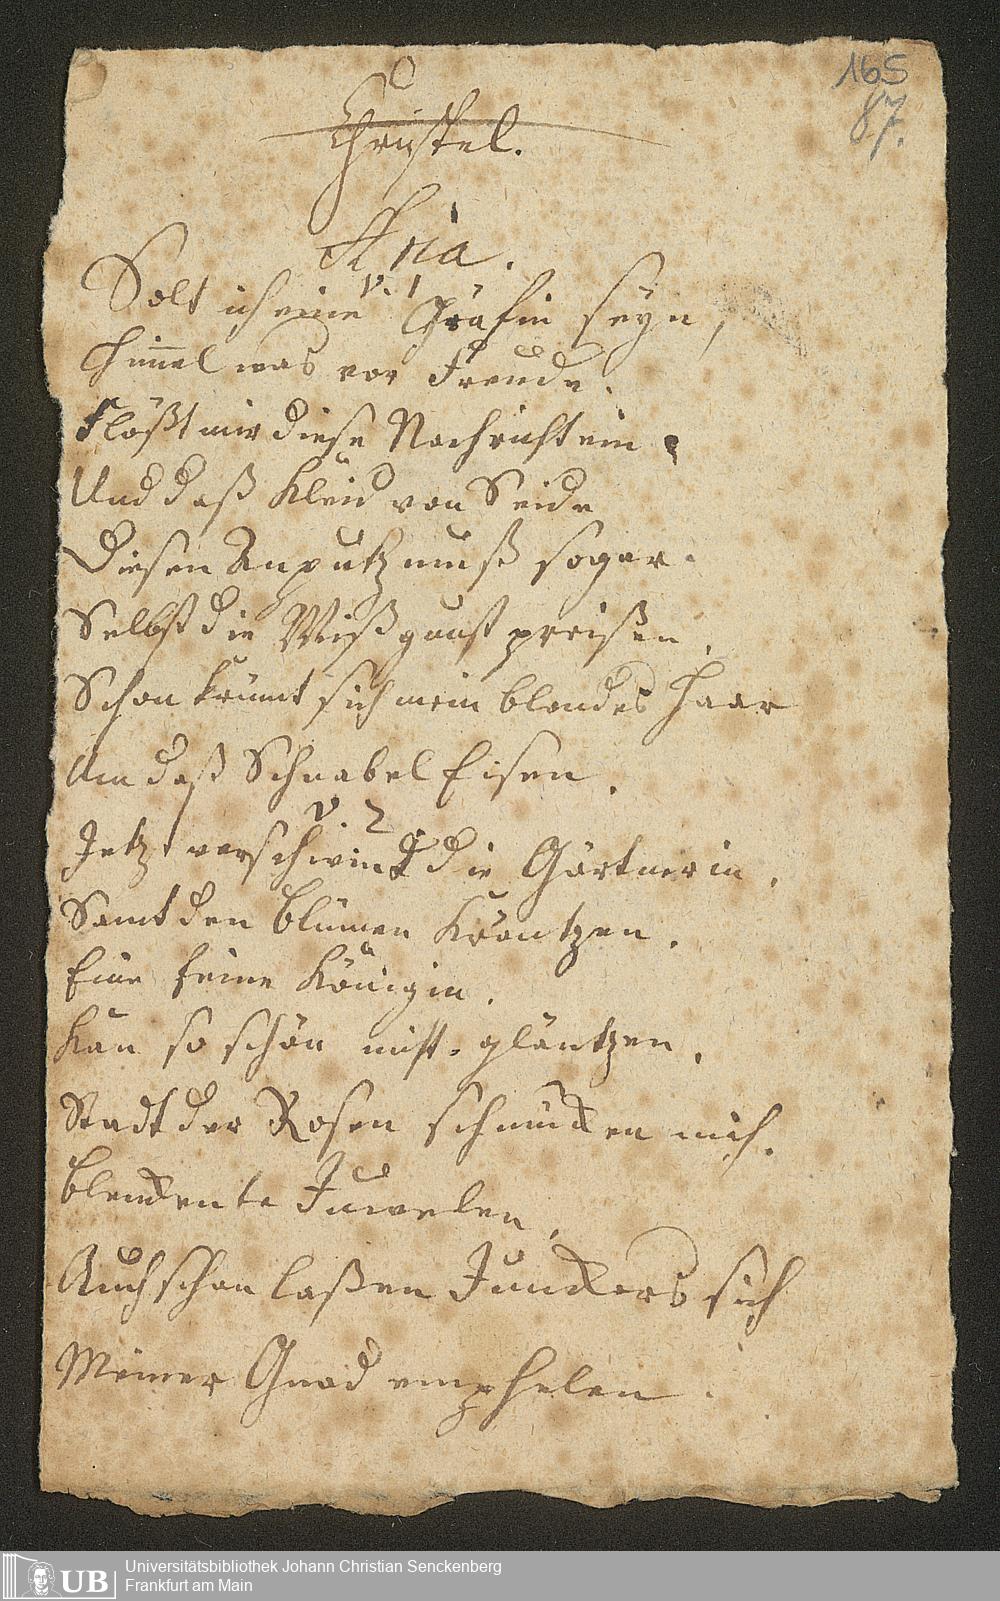 165
87.
Christel.
Aria.
v. 1
Solt ich eine Gräfin seyn,
Himel was vor Freude.
Flößt mir diese Nachricht ein
Und daß Kleid von Seide
Diesen Anputz muß sogar.
Selbst die Mißgunst preißen.
Schon krümt sich mein blondes Haar
Um daß Schnabel Eisen.
v. 2.
Jetzt verschwindt die Gärtnerin.
Samt den Blumen Kräntzen.
Eine Feine Königin.
Kan so schön nicht gläntzen.
Stadt der Rosen schmücken mich.
Blenckente Juwelen.
Auch schon laßen Junckers sich
Meiner Gnad emphelen.
UB
Universitätsbibliothek Johann Christian Senckenberg
Frankfurt am Main